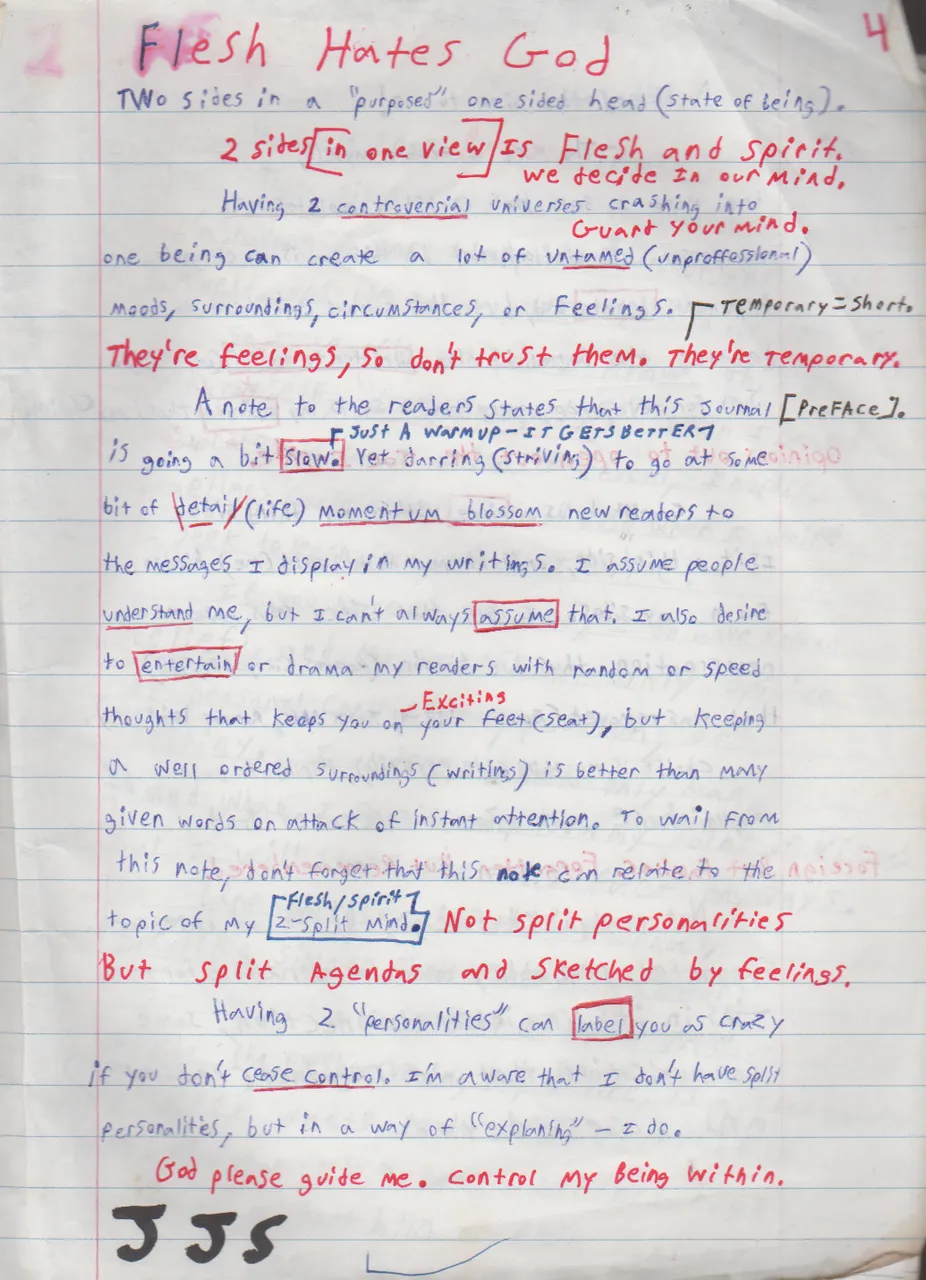 4
Flesh Hates God
Two sides in a "purposed" one sided head (state of being).
2 sides [in one view] Is Flesh and Spirit.
We decide In our Mind.
Having 2 controversial universes crashing into
Guard Your Mind.
one being can create a lot of untamed (unproffessional)
moods, surroundings, circumstances, or Feelings.
Temporary = Short.
They're feelings, so don't trust them. They're Temporary.
A note to the readers states that this Journal [PreFAce].
Just A warmup - It Gets Better
is going a bit slow. Yet darring (striving) to go at some
bit of detail (life) momentum blossom new readers to
the messages I display in my writings. I assume people
understand me, but I can't always assume that. I also desire
to entertain or drama my readers with random or speed
Exciting
thoughts that keeps you on your feet (seat), but keeping
a well ordered surroundings (writings) is better than many
given words on attack of instant attention. To wail from
this note, don't forget that this note can relate to the
Flesh/Spirit
topic of my 2-split mind. Not split personalities
But split Agendas and Sketched by feelings.
Having 2 "personalities" can label you as crazy
if you don't cease control. I'm aware that I don't have split
personalities, but in a way of "explaning" - I do.
God please guide me. Control My Being Within.
JJS